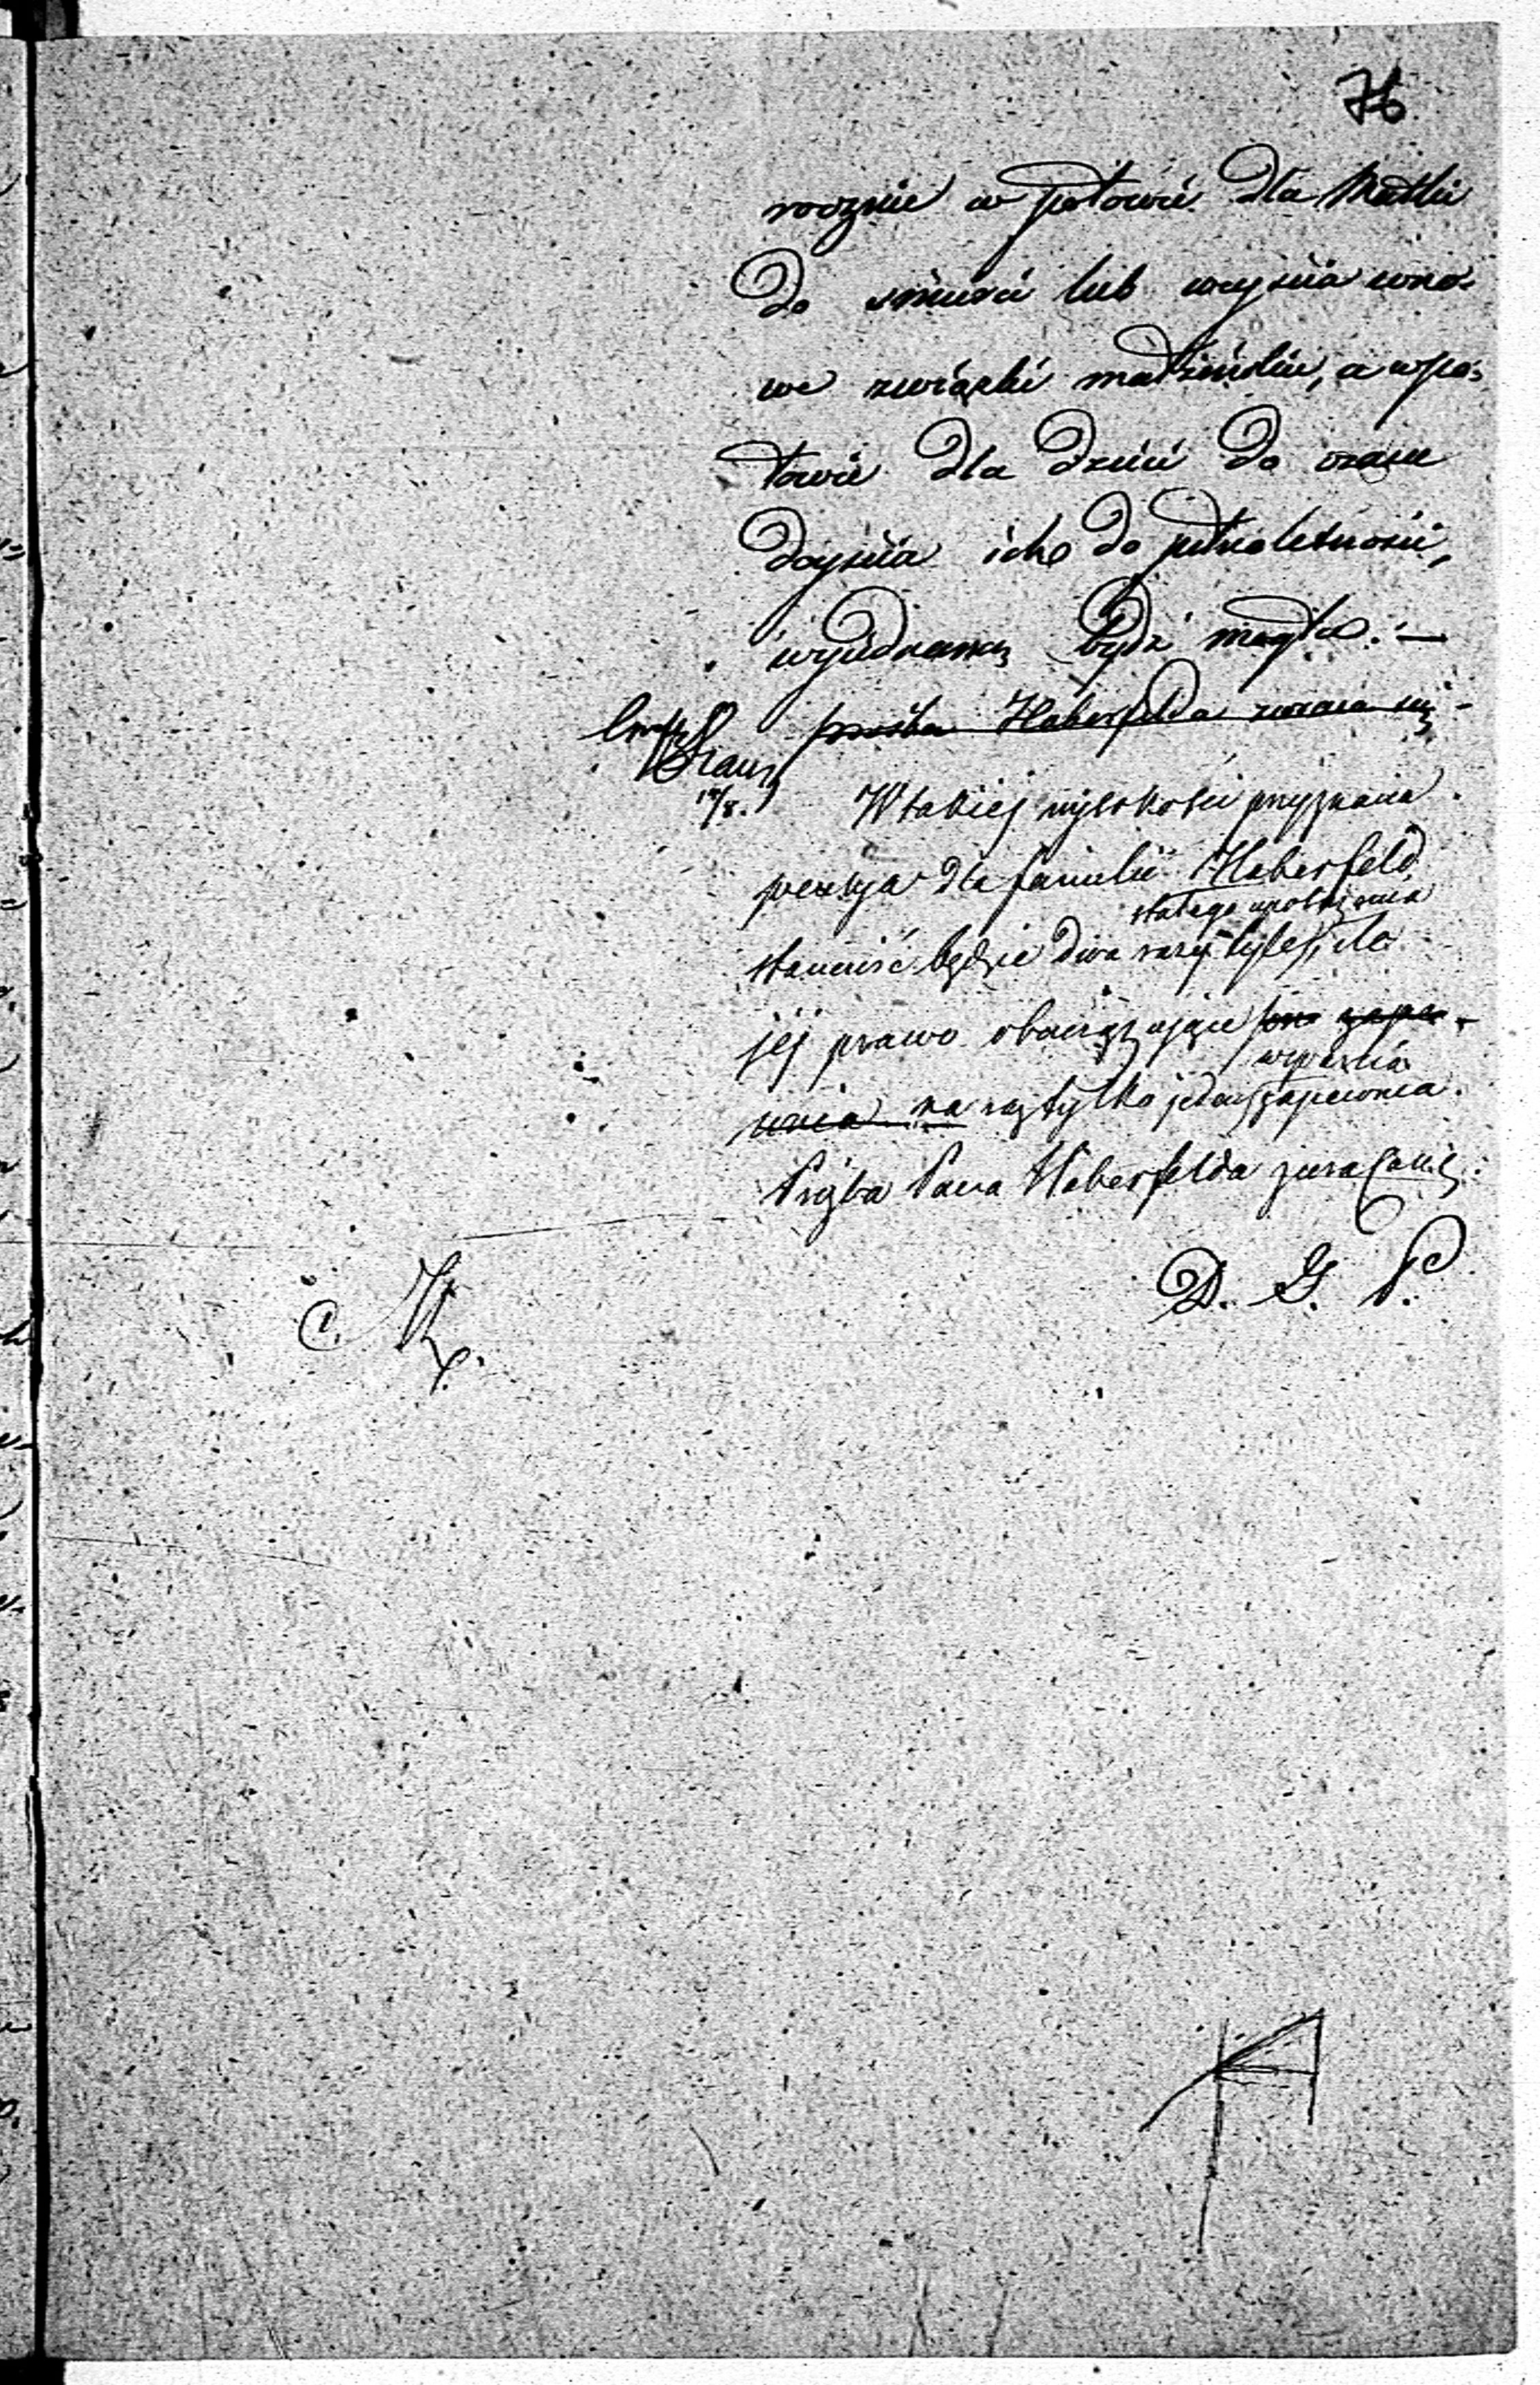 76.
rocznie w połowie dla Matki
do śmierci lub wejścia w no-
we związki małżeńskie, a w po-
łowie dla dzieci do czasu
dojścia ich do pełnoletności,
wyjednaną bydź mogła. —
prośba Haberfelda zwraca się -
17/8.
W takiej wysokości przyznana
pensya dla familii Haberfeld
stałego uposażenia
stanowić będzie dwa razy tyle, ile
jej prawo obowiązujące zape-
wsparcia
wnia na raz tylko jeden zapewnia.
Prośba Pana Haberfelda zwraca się.
D. G. P.